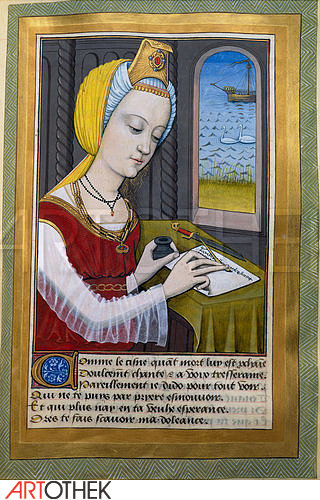 Comme le cisne quāt mort luy est pchaine
Doulcemt chante & a voix tresseraine
Pareillement ie dido pour tout voir
Qui ne te puys par pryere esmouuoir
Et qui plus nay en ta veuhe esperance
Ores te fais scauoir ma doleance.
ARTOTHEK